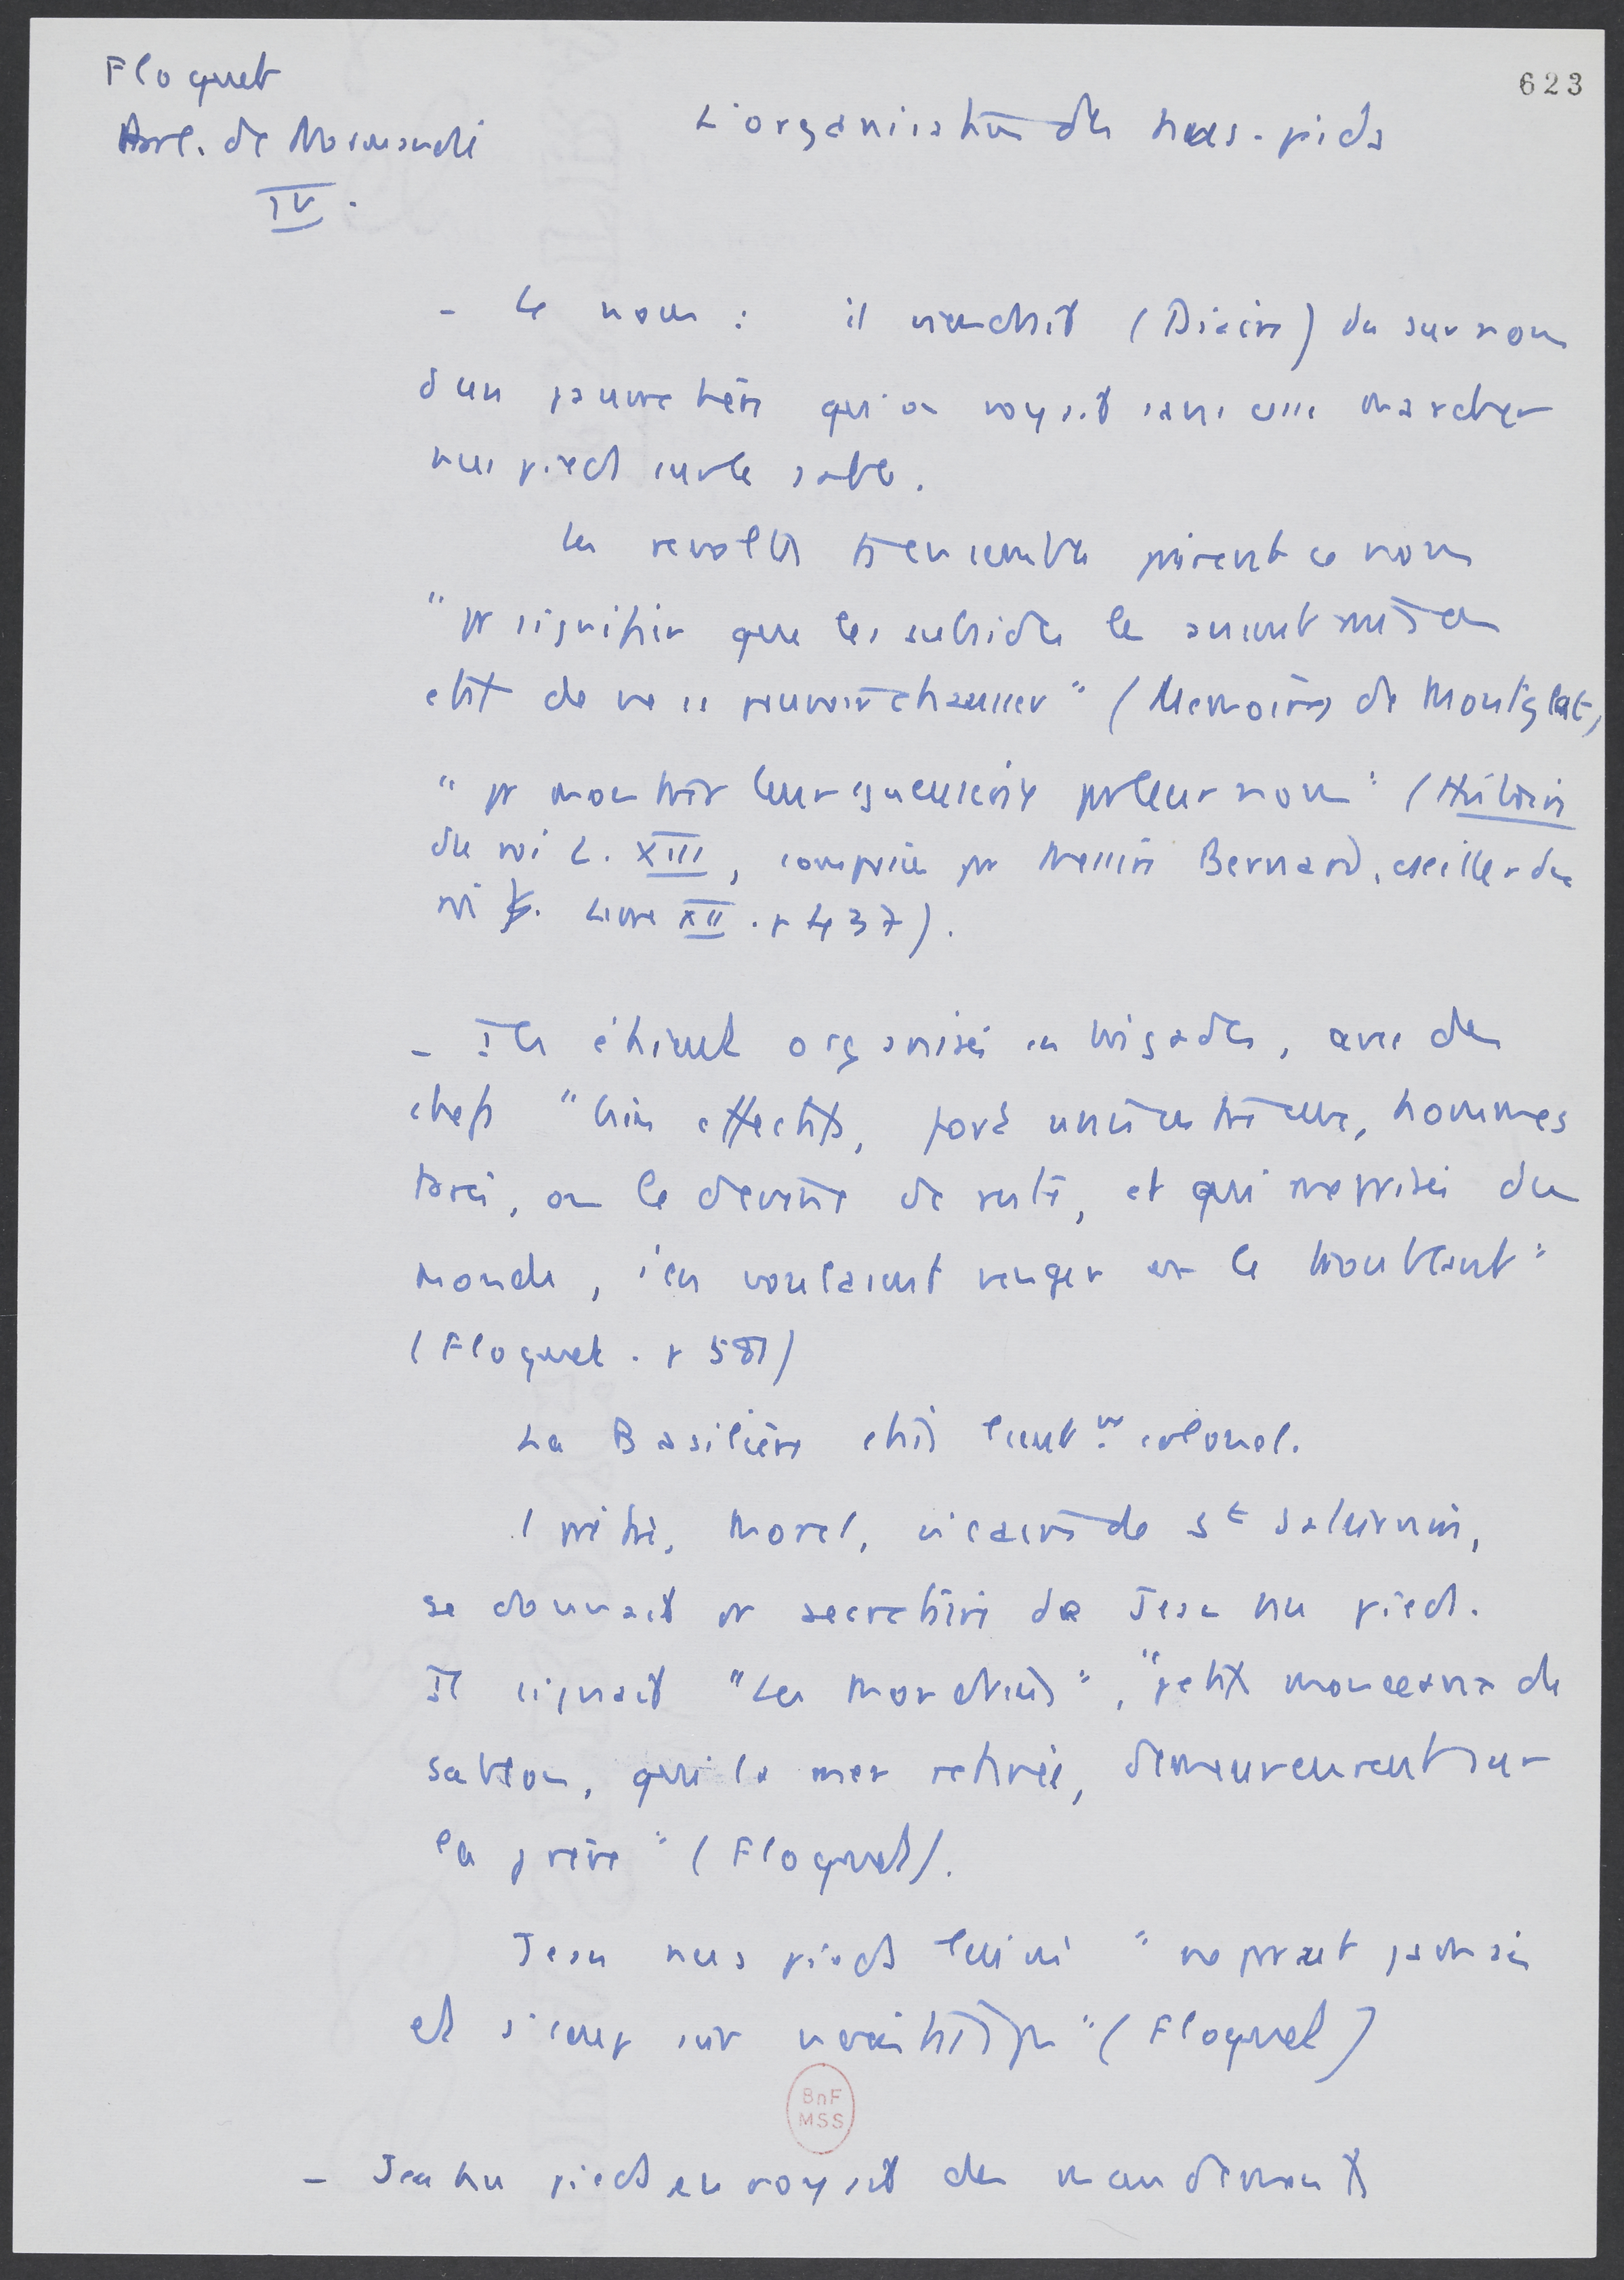 Floquet
Parl. de Normandie
IV.
623
L'organisation des nus-pieds
- Le nom : il viendrait (Bicais) du surnom
d'un pauvre hère qu'on voyait sans cesse marcher
nus pieds sur le sable.
Les révoltés ensemble prirent ce nom
"pr signifier que les subsides les avaient mis en
état de ne se pouvoir chausser" (Memoires de Montglat,
"pr montrer leur gueuserie par leur nom" (Histoire
du roi L. XIII, composée par Messire Bernard, cseiller du
roi. Livre XII. p 437).
- Ils étaient organisés en brigades, avec des
chefs "bien effectifs, pas imaginaires, hommes
tarés, on le devine de reste, et qui méprisés du
monde, s'en voulaient venger en le troublant"
(Floquet. p 581)
La Basilière était lieutnt colonel.
1 prêtre, Morel, vicaire de St Saturnin,
se donnait pr secrétaire de Jean nu pieds.
Il signait "Les Mondrins", "petits monceaux de
sablon, qui la mer retirée, demeurèrent sur
la grève" (Floquet).
Jean nus pieds lui mê "ne parut jamais
et (Floquet)
BnF
MSS
- Jean nu pieds envoyait des mandements